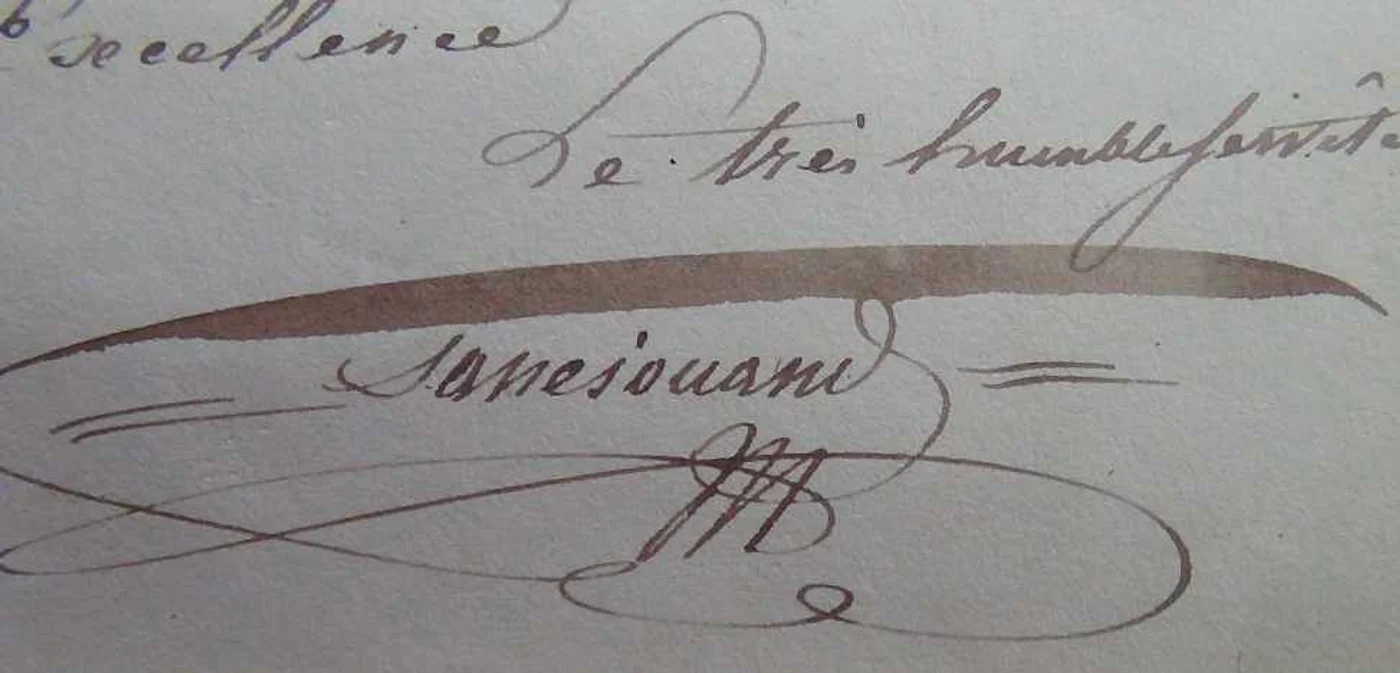 excellence
Le très humble servit
Sanesouand
M